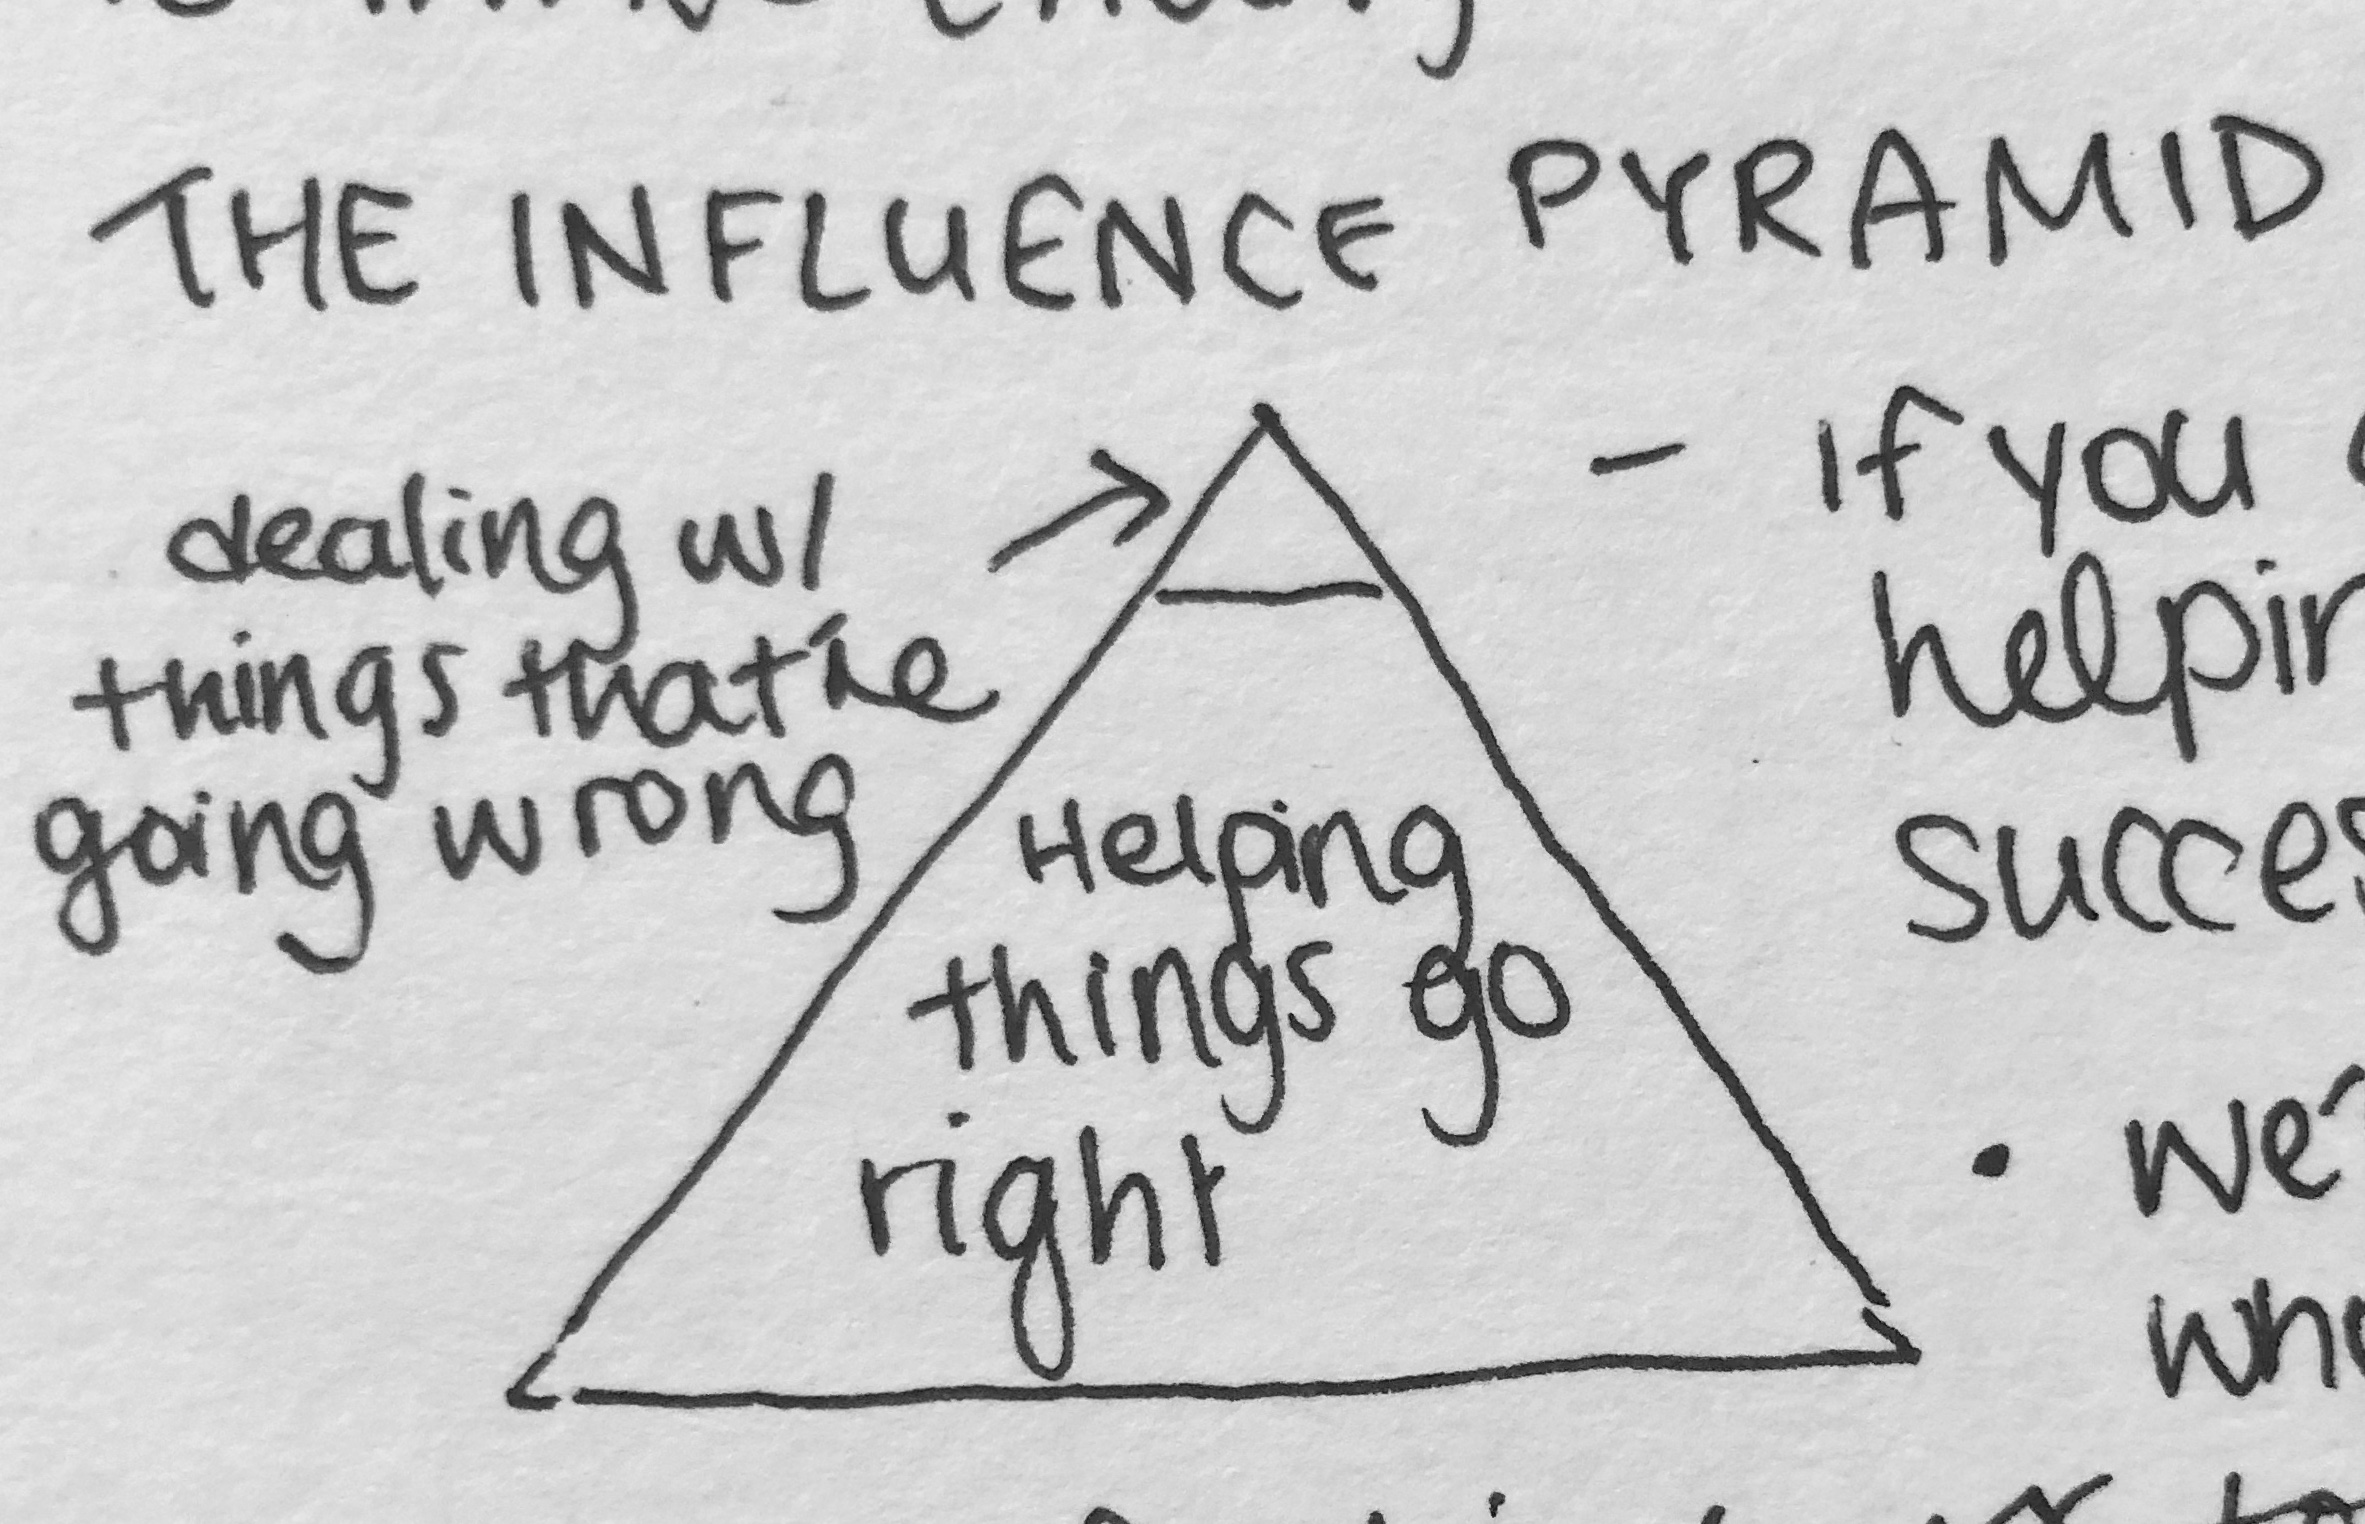 THE INFLUENCE PYRAMID
dealing w/
things that're
going wrong
Helping
things go
right
- if you
we'